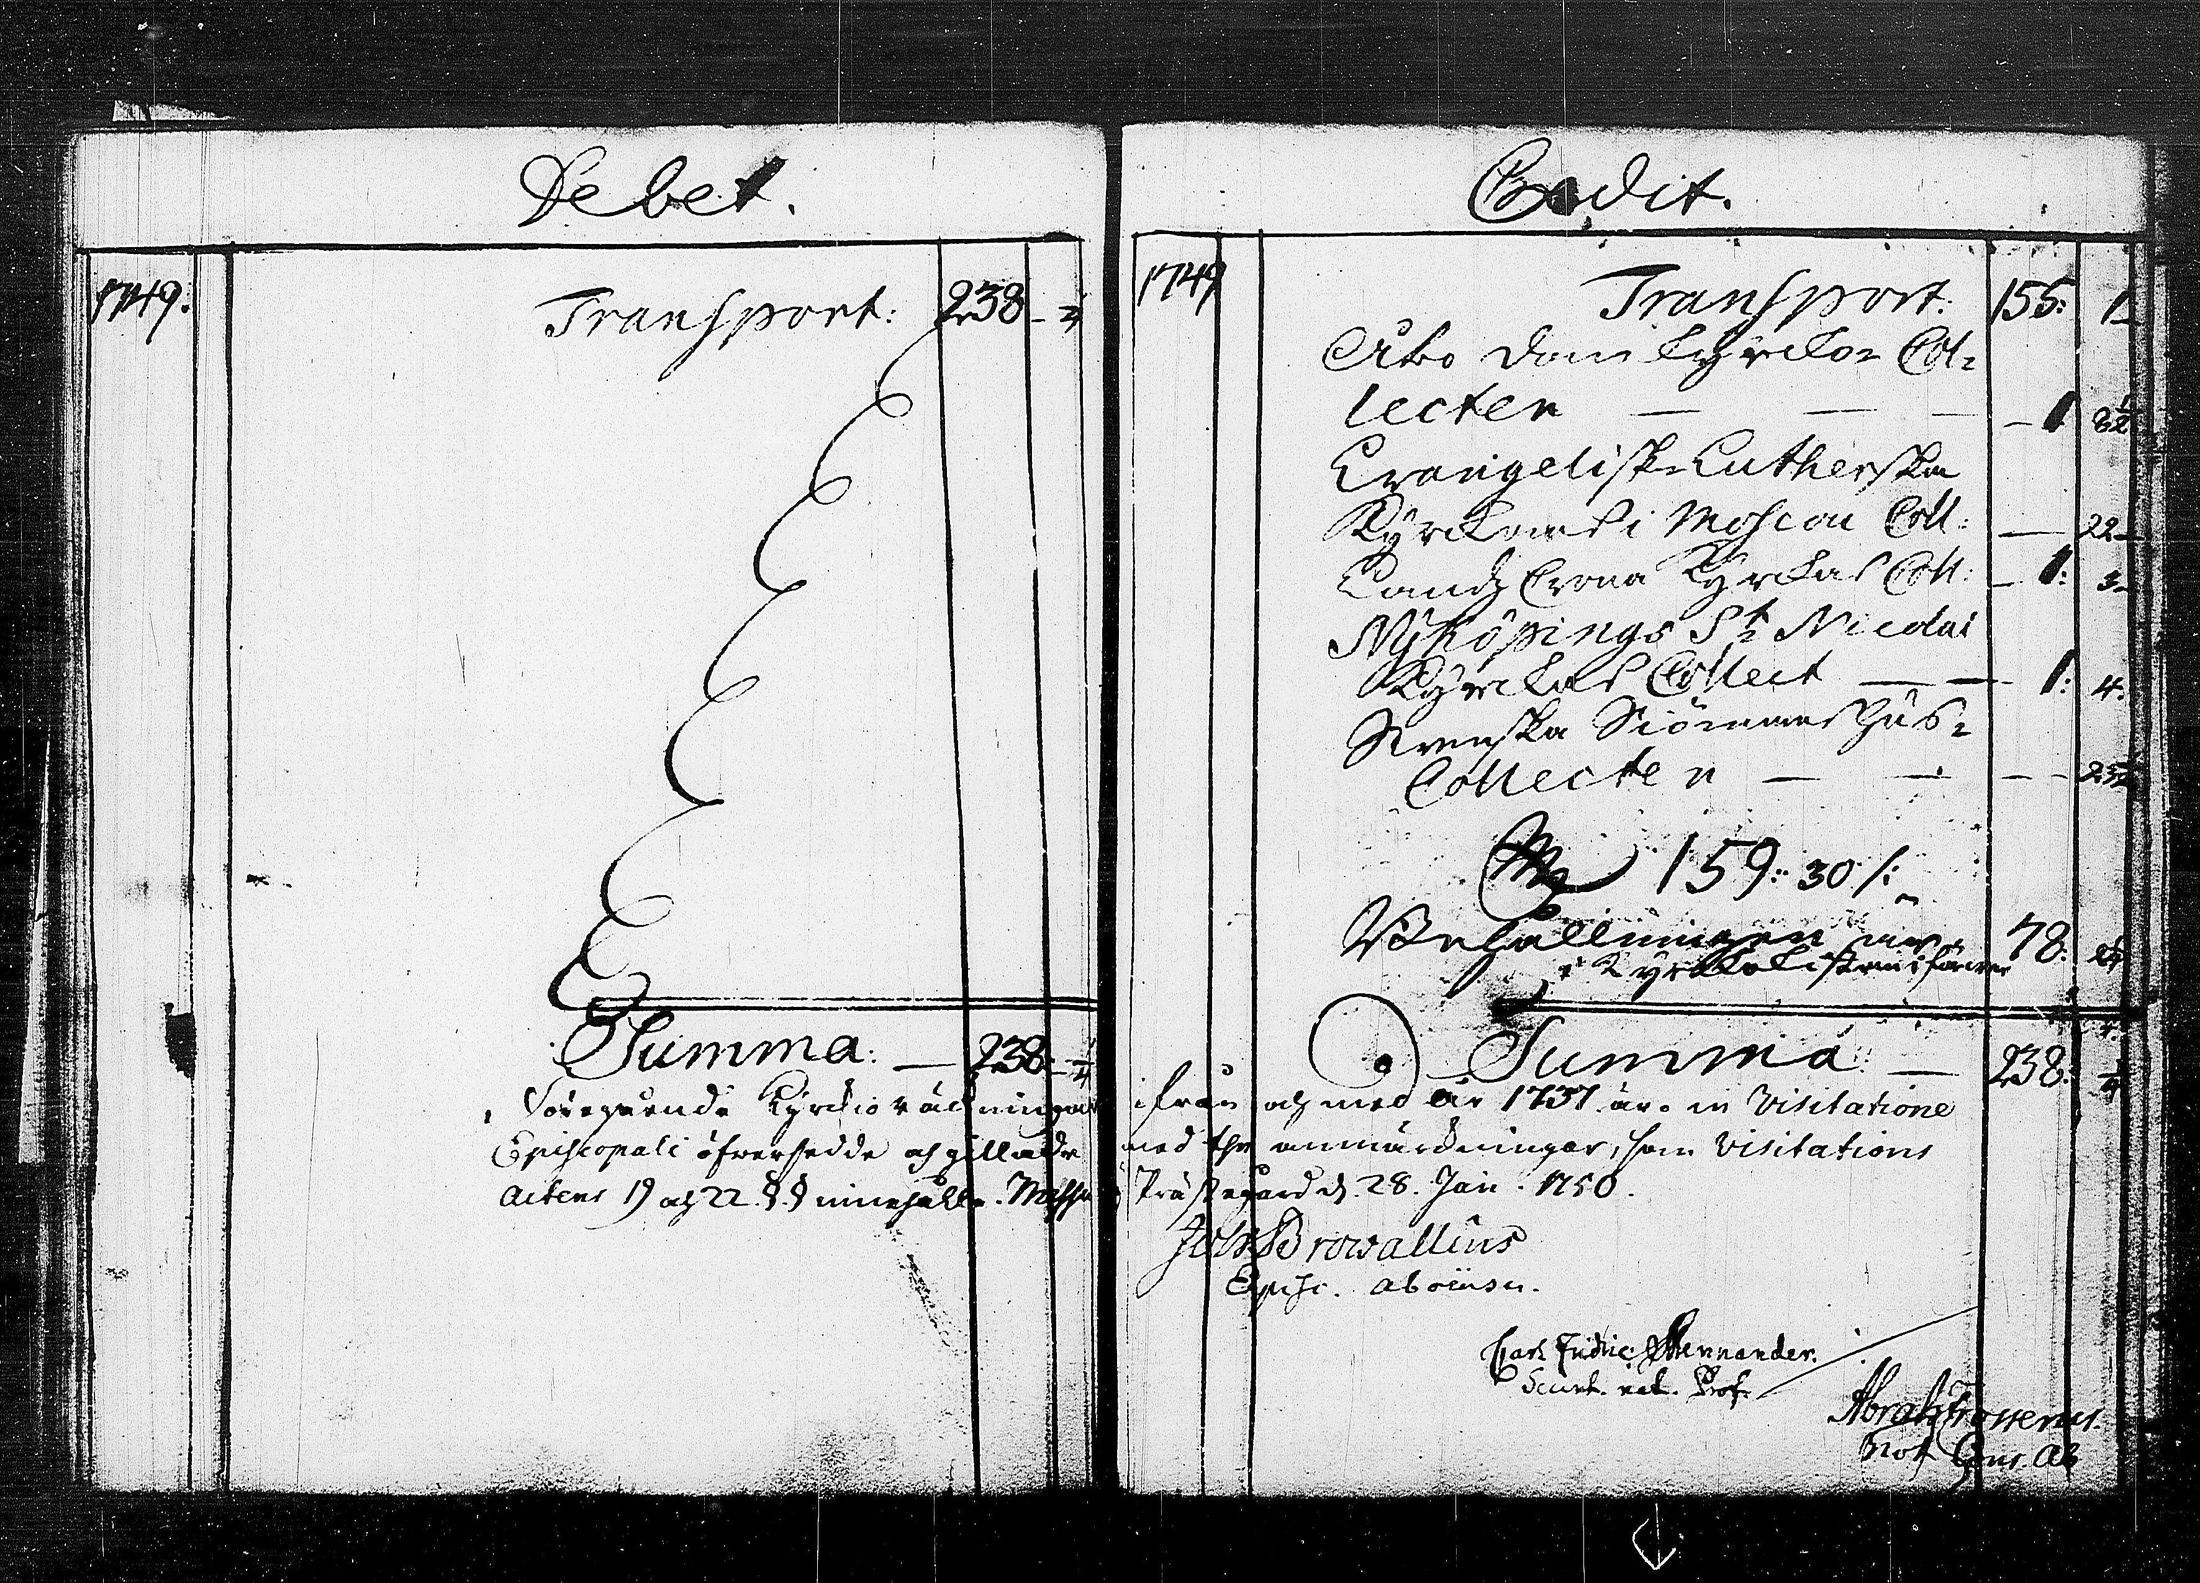 Debet.
1749. Transport: 238 — 1/4
Summa: — 238: — 1/4
Credit.
1749 Transport: 155: 1 —
Åbo Domkyrckio Col-
lecten — — — 1 8 1/2
Evangelisk-Lutherska
Kyrckans i Moscou Coll: — 22 —
Landz Crona Kyrckas Coll: — 1: 3 —
Nÿköpings St Nicolai
Kyrckas Collect — — 1: 4.
Svenska Siömans hus-
Collecten — — — 23 1/2
159: 30 /:
Behållningen
78:
Summa — 238: 1/4
Föregående Kyrckio räckningar ifrån och med år 1737 äro in Visitatione
Episcopali öfversedde och gillade med the anmärckningar, som Visitations
Actens 19 och 22 §.§ innehålla. Prästegård d. 28. Jan. 1750.
Joh. Browallius
Episc. Aboens.
Carl Fridric Mennander.
Prof.
Abrah. Frosterus.
Not. Cons. Ab